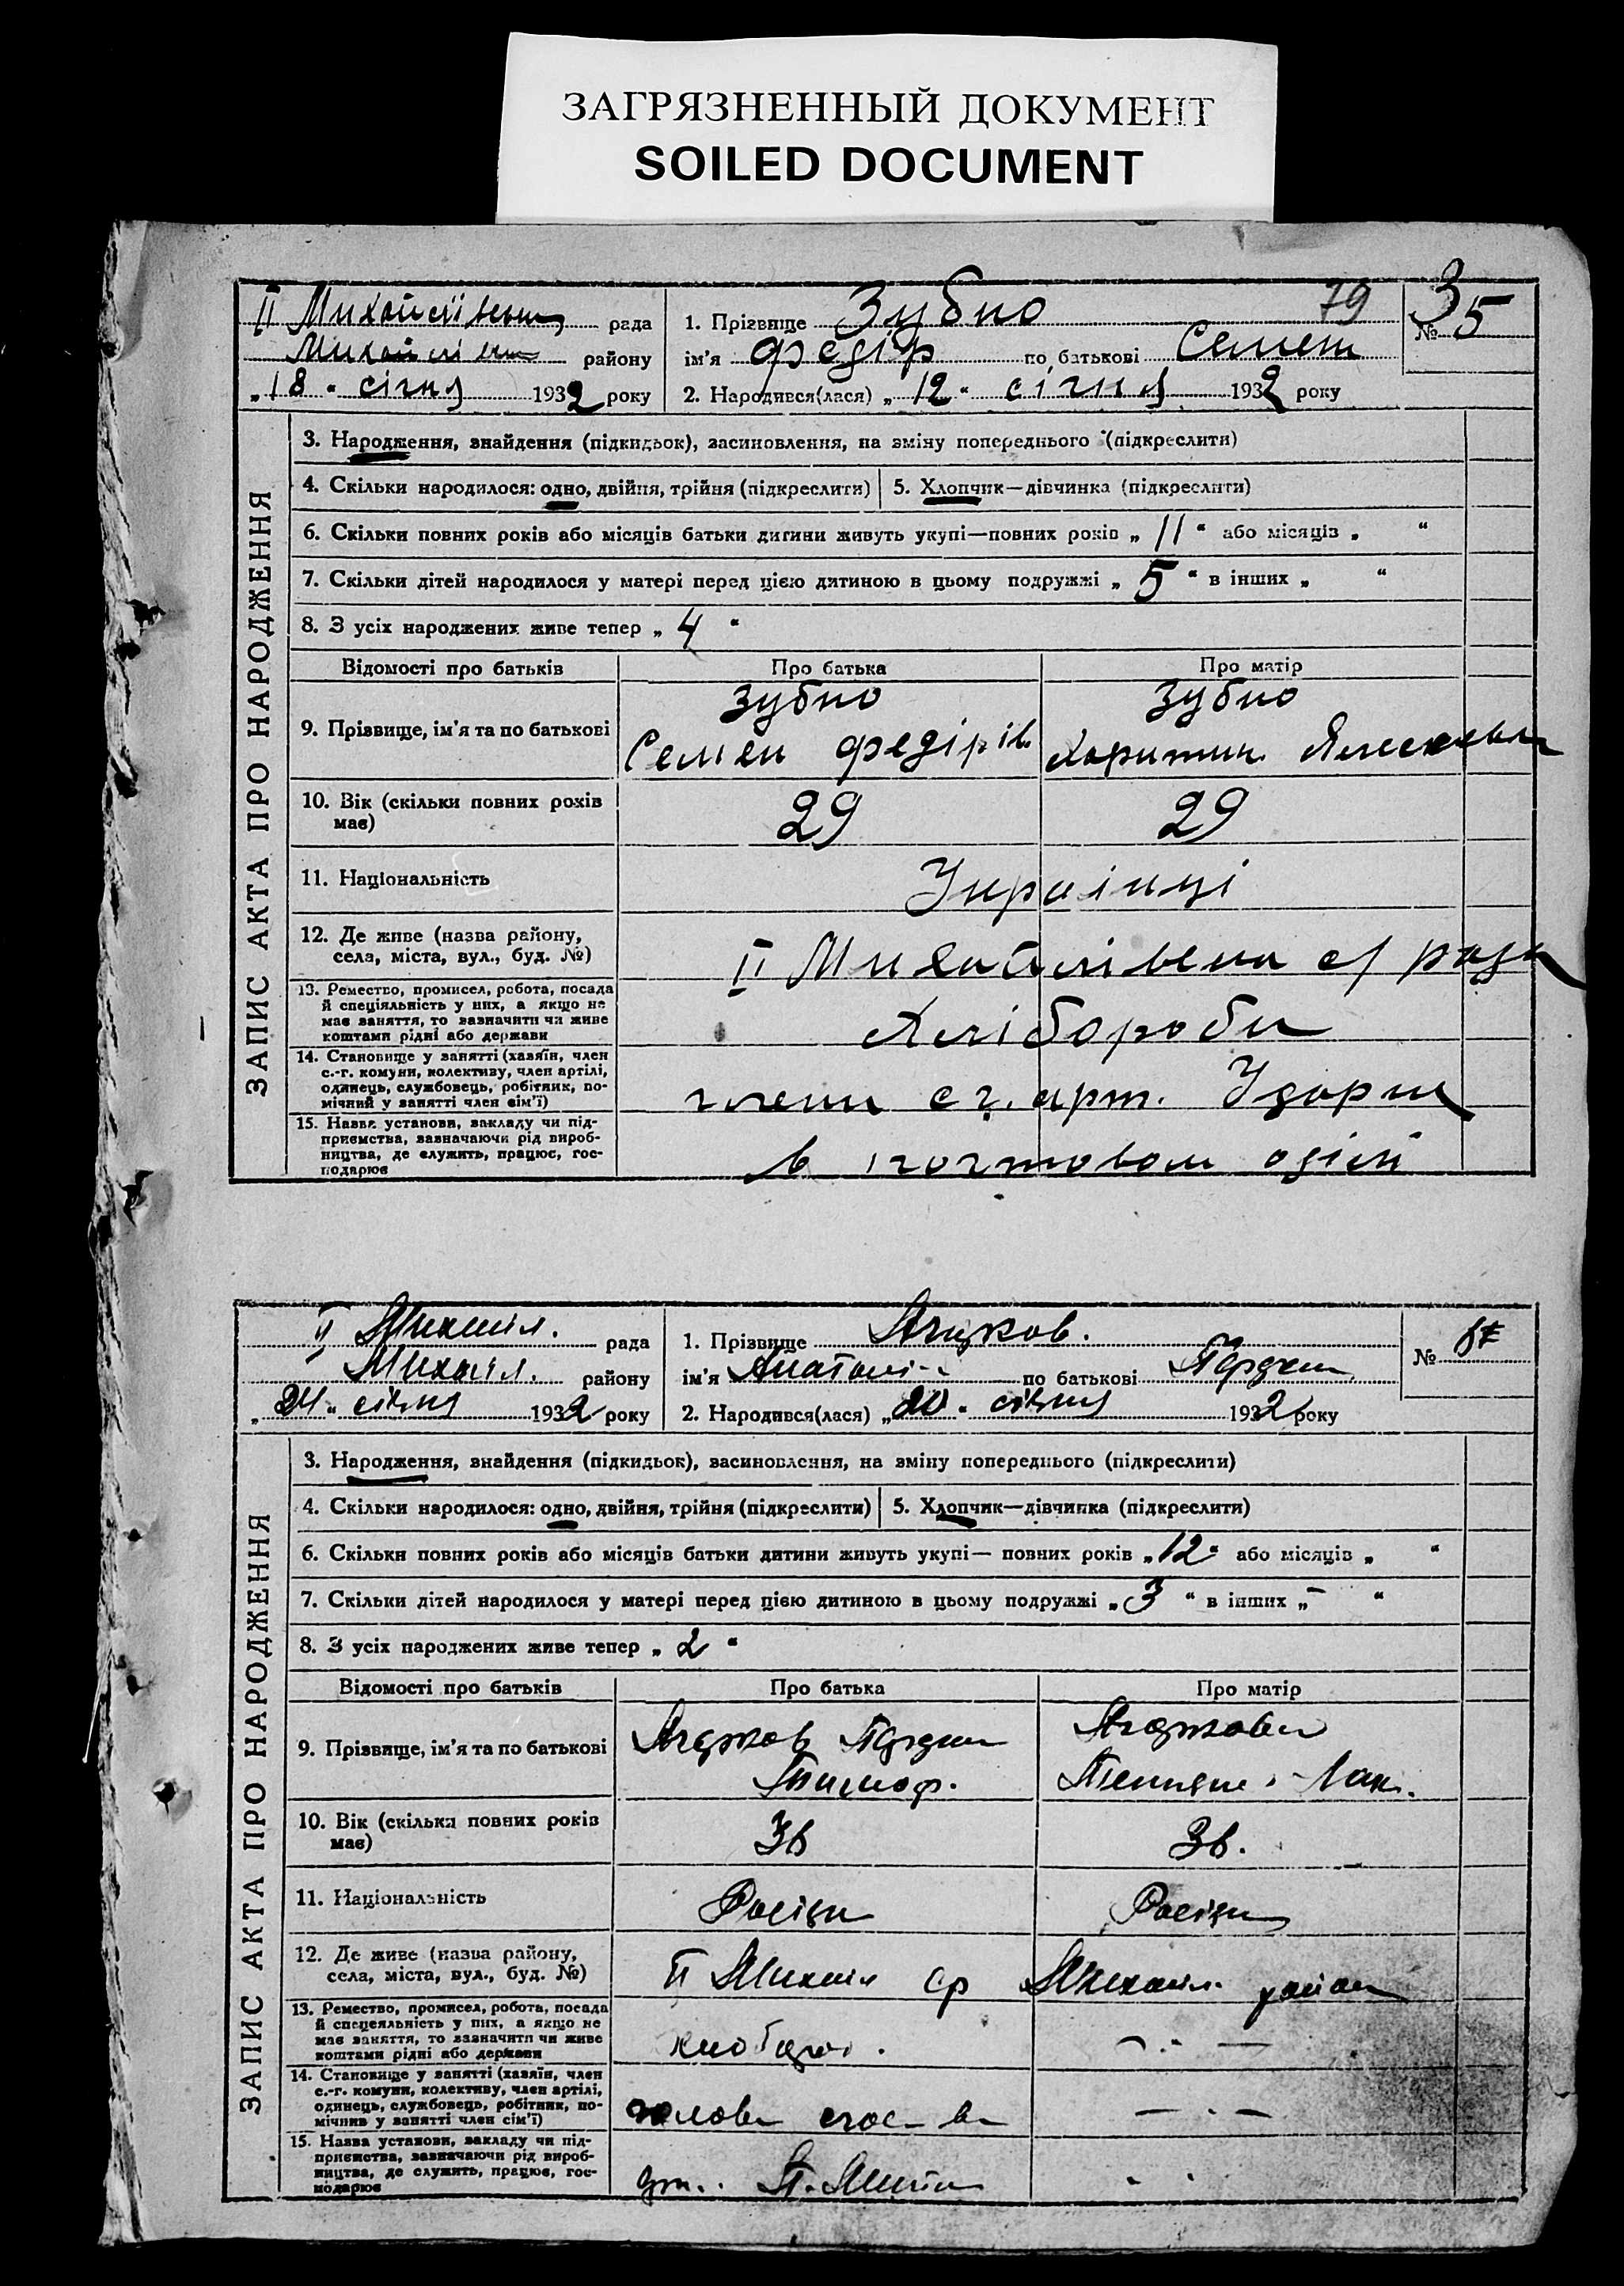 ЗАГРЯЗНЕННЫЙ ДОКУМЕНТ
SOILED DOCUMENT
79
ЗАПИС АКТА ПРО НАРОДЖЕННЯ
II Михайлівськ рада
району
„18“ січня 1932 року
1. Прізвище Зубко
№ 35
ім'я Федір по батькові Семен
2. Народився(лася) „12“ січня 1932 року
3. Народження, знайдення (підкидьок), засиновлення, на зміну попереднього (підкреслити)
4. Скільки народилося: одно, двійня, трійня (підкреслити)
5. Хлопчик—дівчинка (підкреслити)
6. Скільки повних років або місяців батьки дитини живуть укупі—повних років „11“ або місяців „ “
7. Скільки дітей народилося у матері перед цією дитиною в цьому подружжі „5“ в інших „ “
8. З усіх народжених живе тепер „4“
Відомості про батьків
Про батька
Про матір
9. Прізвище, ім'я та по батькові
Зубко
Семен Федірів
Зубко
10. Вік (скільки повних років
має)
29
29
11. Національність
Українці
12. Де живе (назва району,
села, міста, вул., буд. №)
II Михайлівська с/рада
13. Ремество, промисел, робота, посада
й спеціяльність у них, а якщо не
має заняття, то зазначити чи живе
коштами рідні або держави
Хлібороби
14. Становище у занятті (хазяїн, член
с.-г. комуни, колективу, член артілі,
одинець, службовець, робітник, по-
мічний у занятті член сім'ї)
члени с.г. арт. Ударник
15. Назва установи, закладу чи під-
приємства, зазначаючи рід вироб-
ництва, де служить, працює, гос-
подарює
в
ЗАПИС АКТА ПРО НАРОДЖЕННЯ
II Михайл. рада
Михайл. району
„24“ січня 1932 року
1. Прізвище
№
ім'я Анатолій по батькові
2. Народився(лася) „20“ січня 1932 року
3. Народження, знайдення (підкидьок), засиновлення, на зміну попереднього (підкреслити)
4. Скільки народилося: одно, двійня, трійня (підкреслити)
5. Хлопчик—дівчинка (підкреслити)
6. Скільки повних років або місяців батьки дитини живуть укупі— повних років „12“ або місяців „ “
7. Скільки дітей народилося у матері перед цією дитиною в цьому подружжі „3“ в інших „–“
8. З усіх народжених живе тепер „2“
Відомості про батьків
Про батька
Про матір
9. Прізвище, ім'я та по батькові
Тимоф.
10. Вік (скільки повних років
має)
11. Національність
Росіян
Росіян
12. Де живе (назва району,
села, міста, вул., буд. №)
II Михайл ср Михайл. район
13. Ремество, промисел, робота, посада
й спеціяльність у них, а якщо не
має заняття, то зазначити чи живе
коштами рідні або держави
14. Становище у занятті (хазяїн, член
с.-г. комуни, колективу, член артілі,
одинець, службовець, робітник, по-
мічник у занятті член сім'ї)
голова
15. Назва установи, закладу чи під-
приємства, зазначаючи рід вироб-
ництва, де служить, працює, гос-
подарює